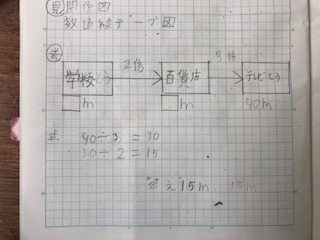 見 関係図
数直線 テープ図
考 2倍 3倍
学校 百貨店 テレビとう
m m 90m
式 90÷3=30
30÷2=15
答え15m 15m